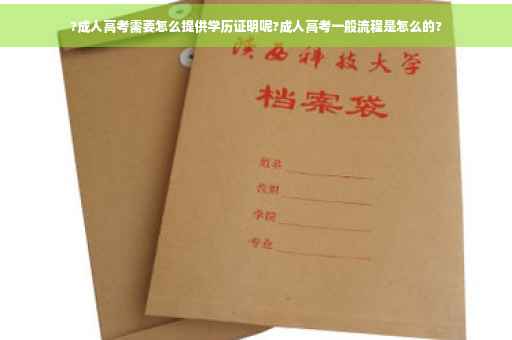 ?成人高考需要怎么提供学历证明呢?成人高考一般流程是怎么的?
陕西科技大学
档案袋
姓名
学院
专业